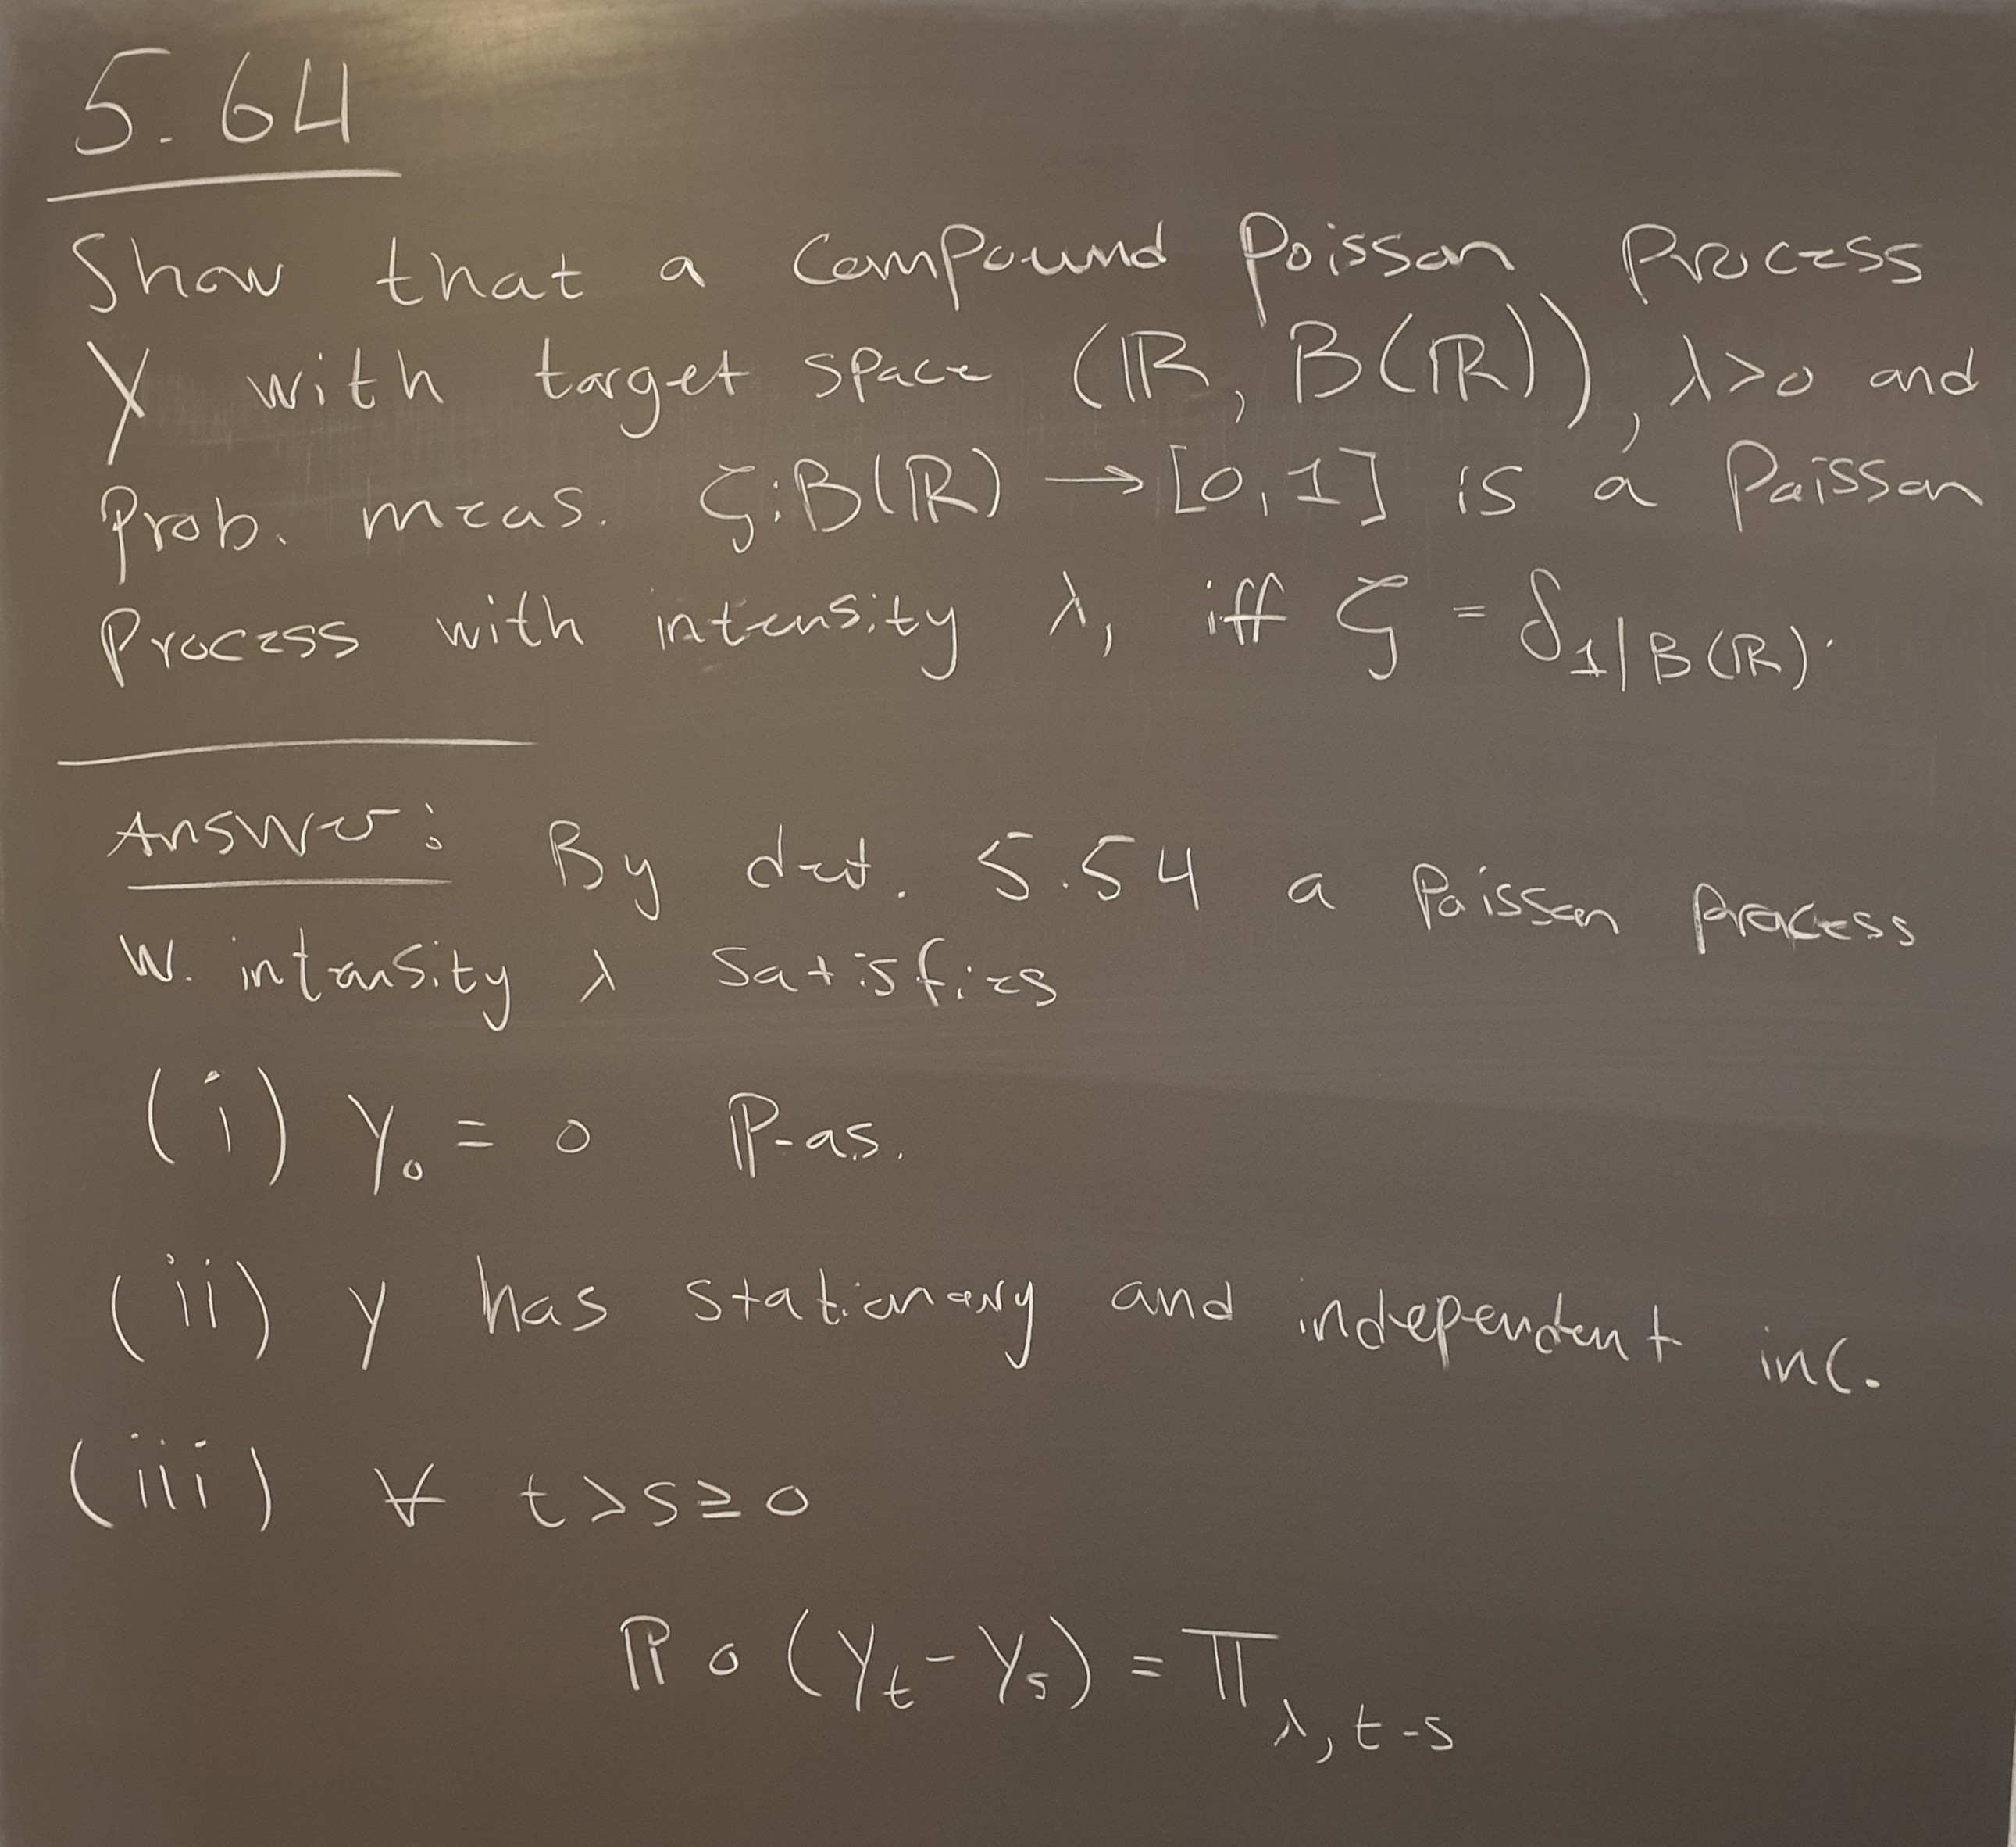 5.64
Show that a Compound Poisson Process
Y with target space (ℝ, B(ℝ)), λ>0 and
Prob. meas. ζ:B(ℝ) → [0,1] is a Poisson
Process with intensity λ, iff ζ = δ_{1|B(ℝ)}.
Answer: By def. 5.54 a Poisson Process
W. intensity λ Satisfies
(i) Y₀ = 0 ℙ-as.
(ii) Y has stationary and independent inc.
(iii) ∀ t>s≥0
ℙ∘(Y_t-Y_s) = Π_{λ,t-s}